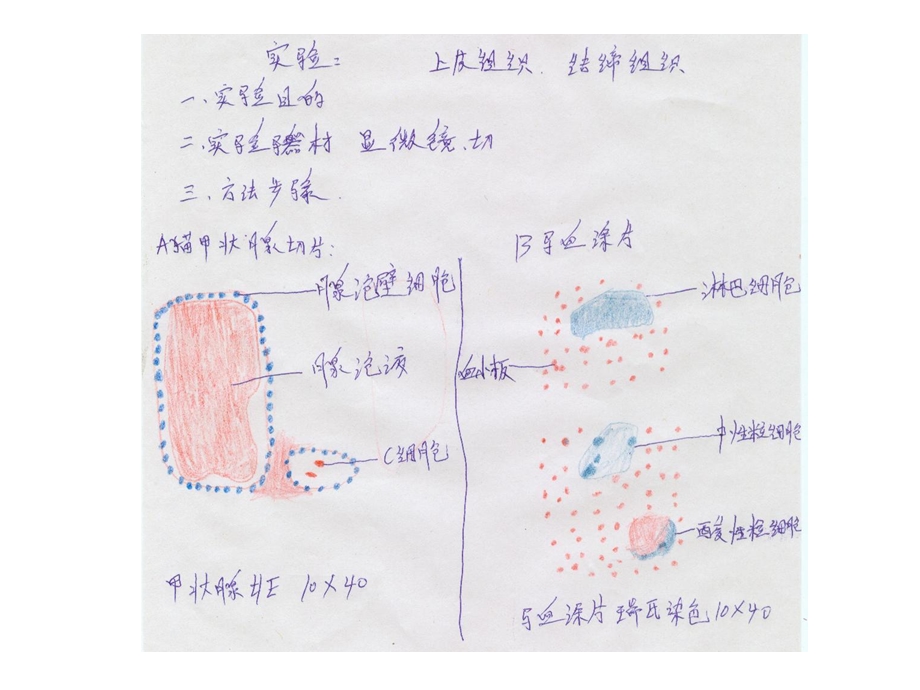 实验: 上皮组织. 结缔组织
一、实验目的
二、实验器材 显微镜、切
三、方法步骤.
A猫甲状腺切片:
腺泡壁细胞
腺泡液
C细胞
甲状腺HE 10×40
B 马血涂片
淋巴细胞
血小板
中性粒细胞
酸性粒细胞
马血涂片 瑞氏染色 10×40